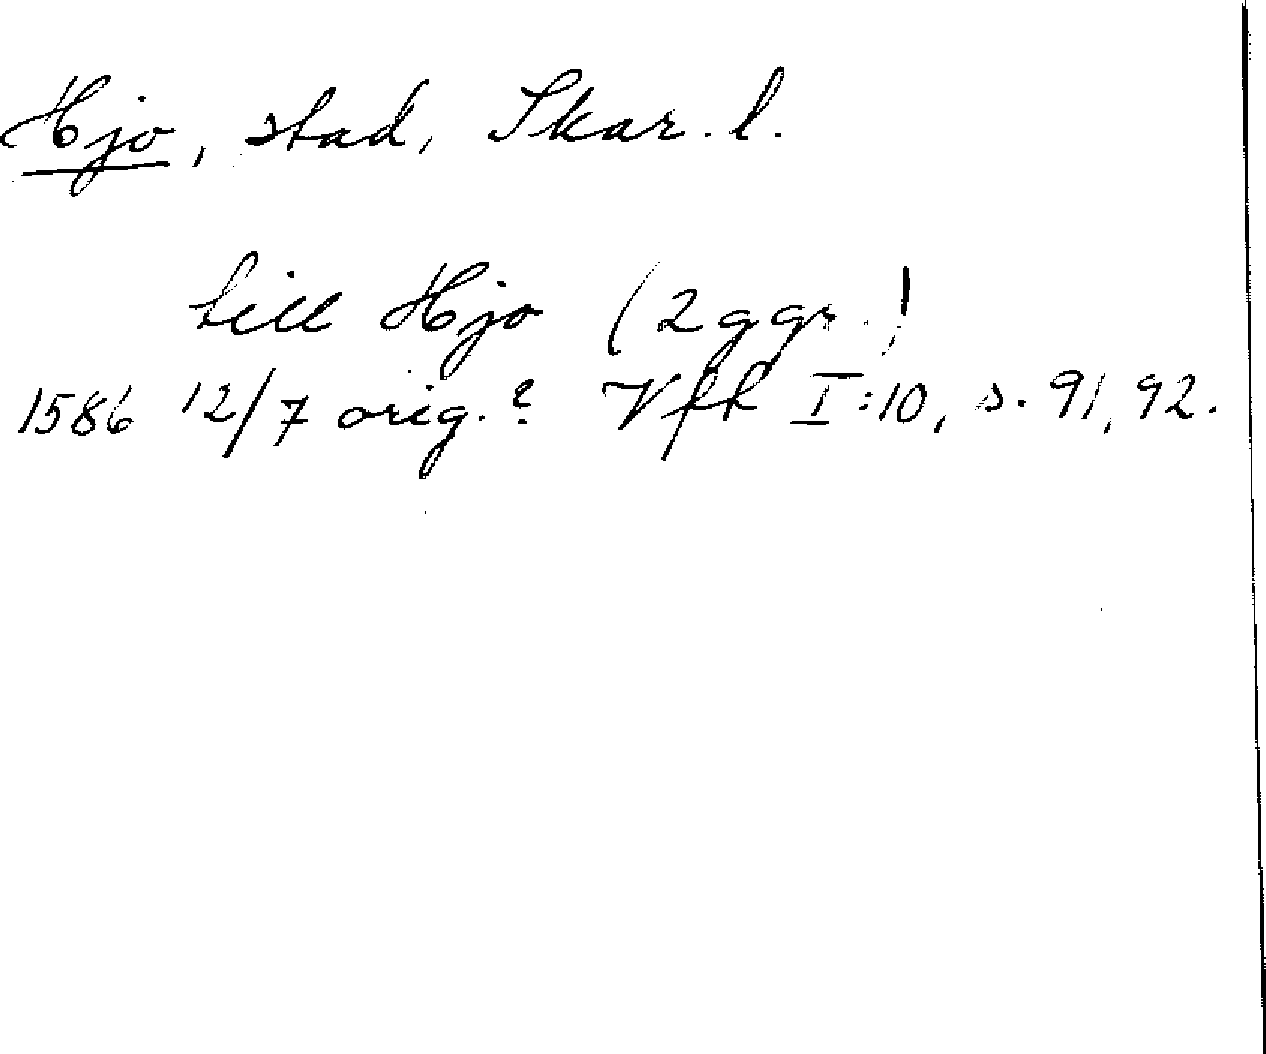 Hjo, stad, Skar. l.
till Hjo (2 ggr.)
1586 12/7 orig.? Vfh I:10, s. 91, 92.